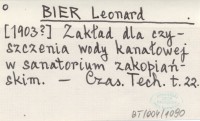 BIER Leonard.
[1903?] Zakład dla czy-
szczenia wody kanałowej
w sanatorium zakopiań-
skim. — Czas. Tech. t. 22.
BT/004/1090